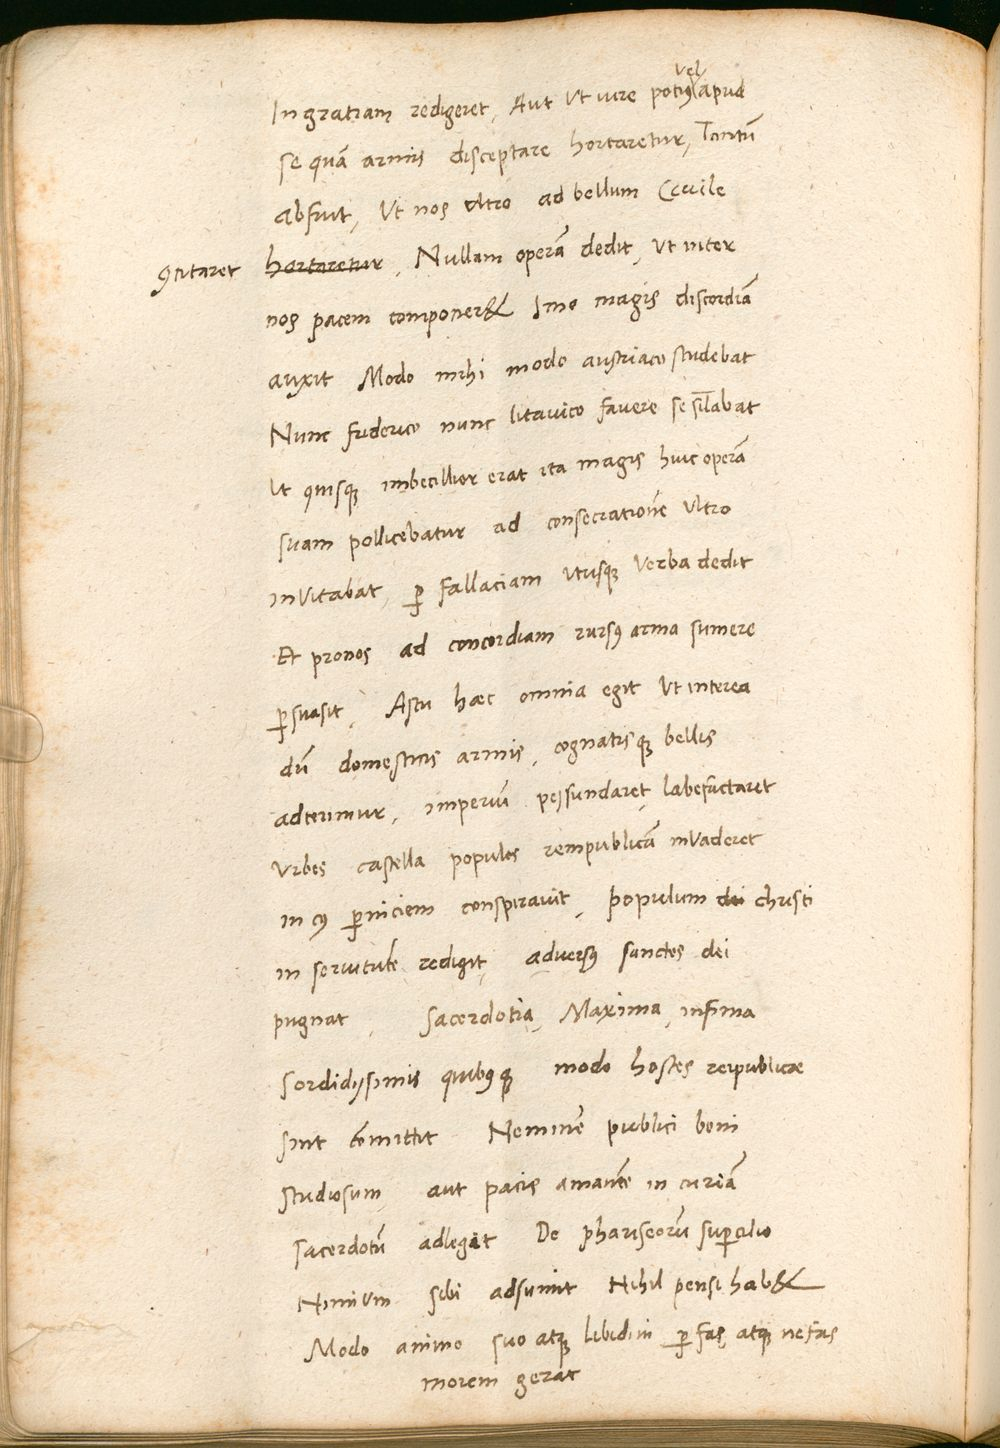 In gratiam redigeret, Aut Ut iure potiꝰ vel apud
se quā armis disceptare hortaretur, Tantū
abfuit, Ut nos ultro ad bellum Ciuile
ꝯcitaret hortaretur, Nullam operā dedit, ut inter
nos pacem componer& Imo magis discordiā
auxit Modo mihi modo austriaco studebat
Nunc friderico nunc litauico favere se sil̄abat
Ut quisqꝫ imbecillior erat ita magis huic operā
suam pollicebatur ad consecrationē ultro
inVitabat, ꝑ fallaciam utrisqꝫ Verba dedit
Et pronos ad concordiam rursꝰ arma sumere
ꝑsuasit, Astu haec omnia egit Ut interea
dū domesticis armis, cognatisqꝫ bellis
adterimur, imperiū pessundaret, labefactaret
Vrbes castella populos rempublicā inVaderet
in cꝰ ꝑniciem conspirauit, populum dei christi
in seruitutē redigit, aduersꝰ sanctos dei
pugnat, Sacerdotia, Maxima, infima
Sordidissimis quibꝰqꝫ modo hostes reipublicae
sint cōmittit Neminē publici boni
studiosum aut pacis amantē in curiā
sacerdotū adlegat De phariseorū suꝑcilio
Nimium sibi adsumit Nihil pensi hab&
Modo animo suo atqꝫ Libidini ꝑ fas atqꝫ nefas
morem gerat